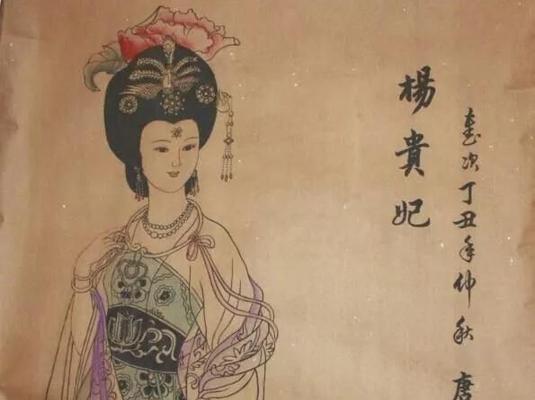 楊貴妃
歲次丁丑年仲秋 唐